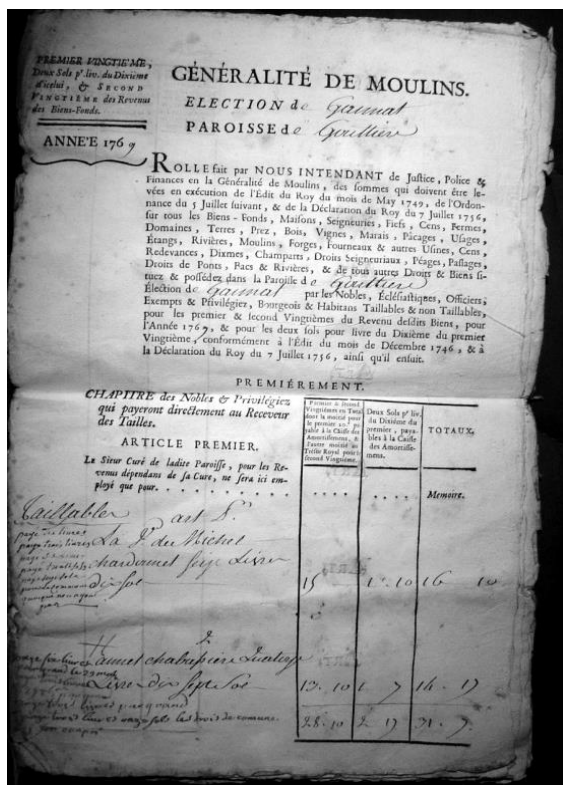 PREMIER VINGTIEME,
Deux Sols pr. liv. du Dixième
d'icelui, & SECOND
VINGTIÈME des Revenus
des Biens-Fonds.
ANNE'E 1769
GÉNÉRALITÉ DE MOULINS.
ELECTION de Gannat
PAROISSE de Goultiere
ROLLE fait par NOUS INTENDANT de Justice, Police &
Finances en la Généralité de Moulins, des sommes qui doivent être le-
vées en exécution de l'Édit du Roy du mois de May 1749, de l'Ordon-
nance du 5 Juillet suivant, & de la Déclaration du Roy du 7 Juillet 1756,
sur tous les Biens-Fonds, Maisons, Seigneuries, Fiefs, Cens, Fermes,
Domaines, Terres, Prez, Bois, Vignes, Marais, Pâcages, Usages,
Étangs, Rivières, Moulins, Forges, Fourneaux & autres Usines, Cens,
Redevances, Dixmes, Champarts, Droits Seigneuriaux, Péages, Passages,
Droits de Ponts, Bacs & Rivières, & de tous autres Droits & Biens si-
tuez & possédez dans la Paroisse de Goultiere
Élection de Gannat par les Nobles, Écclésiastiques, Officiers,
Exempts & Privilégiez, Bourgeois & Habitans Taillables & non Taillables,
pour les premier & second Vingtièmes du Revenu desdits Biens, pour
l'Année 1769, & pour les deux sols pour livre du Dixième du premier
Vingtième, conformément à l'Édit du mois de Décembre 1746, & à
la Déclaration du Roy du 7 Juillet 1756, ainsi qu'il ensuit.
PREMIÉREMENT.
CHAPITRE des Nobles & Privilégiez
qui payeront directement au Receveur
des Tailles.
ARTICLE PREMIER.
Le Sieur Curé de ladite Paroisse, pour les Re-
venus dépendans de sa Cure, ne sera ici em-
ployé que pour. . . . . . . . . .
Premier & second
Vingtièmes en Total
dont la moitié pour
le premier 20e. pa-
yable à la Caisse des
Amortissemens, &
l'autre moitié au
Trésor Royal pour le
second Vingtième.
Deux Sols pr. liv.
du Dixième du
premier, paya-
bles à la Caisse
des Amortisse-
mens.
TOTAUX.
Mémoire.
Taillables art 1er.
La Ve. du Michel
Seize Livres
dix Sols
15 1 10 16 10
2
Livres dix Sept Sols
13 10 1 7 14 17
28 10 2 17 31 7